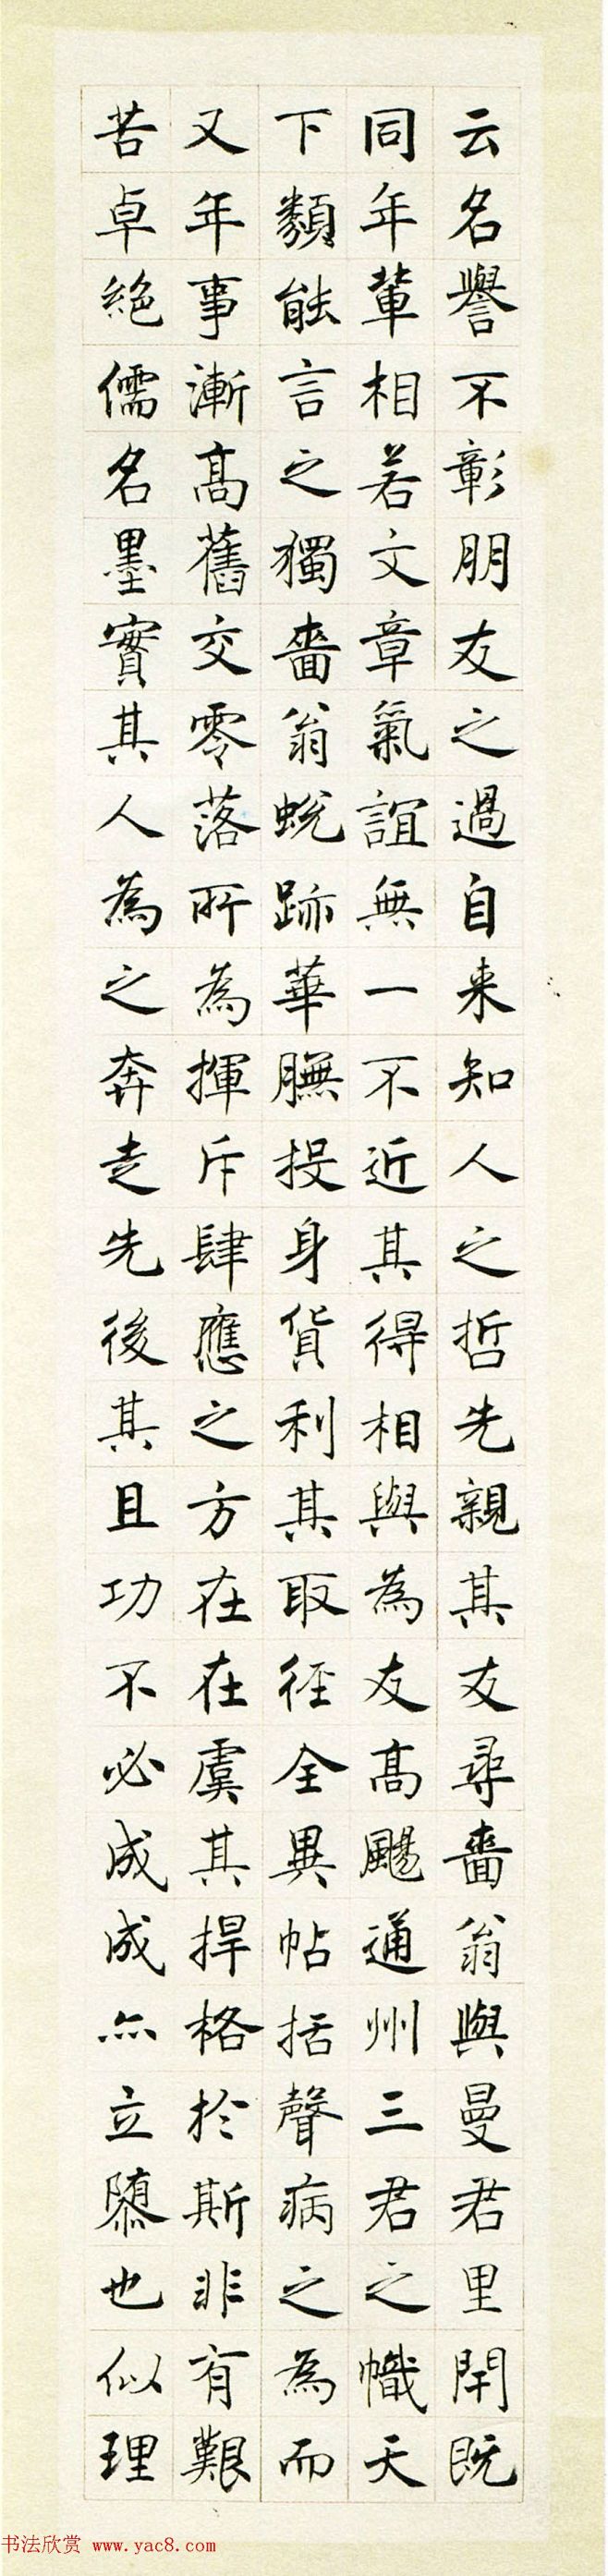 云名譽不彰朋友之過自来知人之哲先親其友尋嗇翁與曼君里閈既
同年輩相若文章氣誼無一不近其得相與為友高颺通州三君之幟天
下類能言之獨嗇翁蛻跡華膴投身貨利其取徑全異帖括聲病之為而
又年事漸高舊交零落所為揮斥肆應之方在在虞其捍格於斯非有艱
苦卓絕儒名墨實其人為之奔走先後其且功不必成成亦立隳也似理
书法欣赏 www.yac8.com